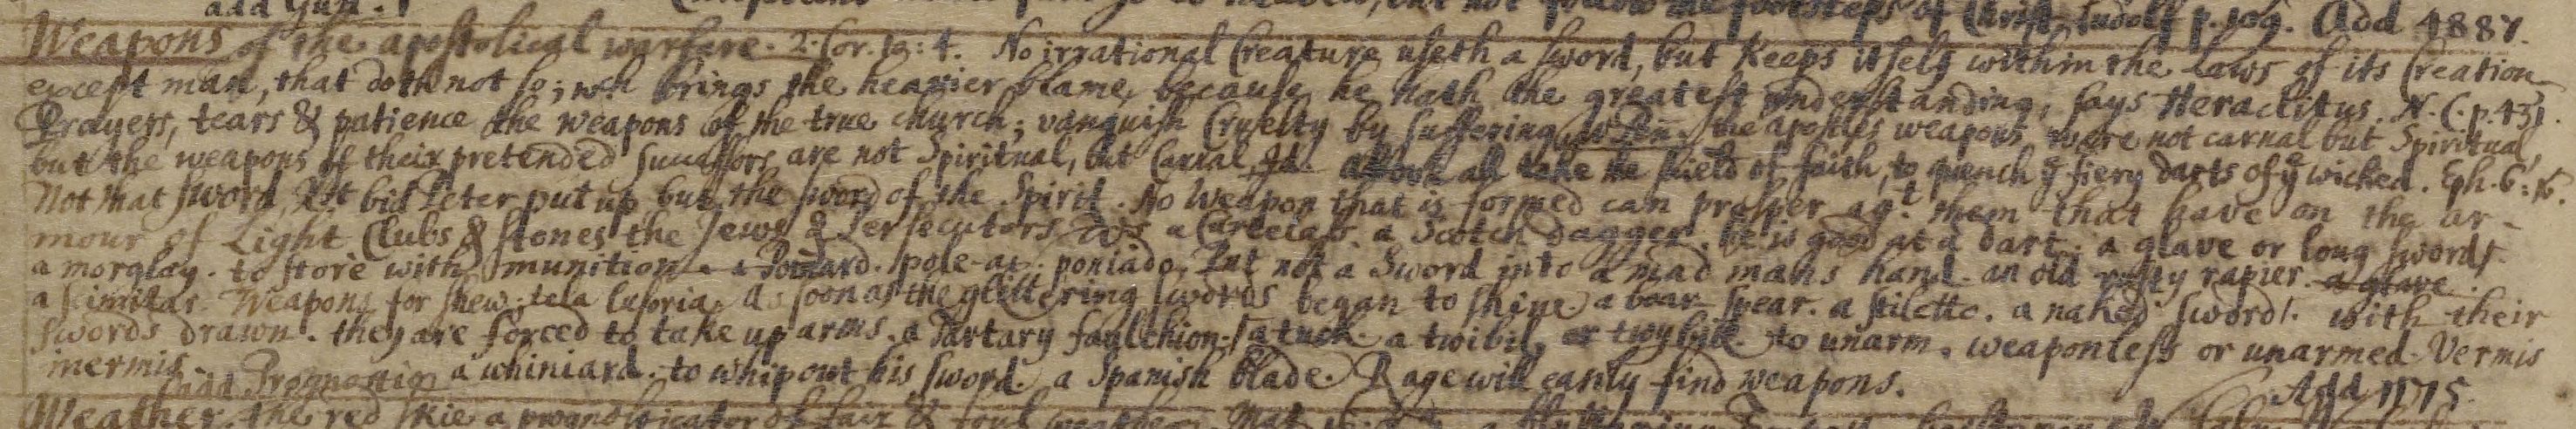 add Gun.
of Christ, Ludolf p. 109. Add 4887.
Weapons of the apostolical warfare. 2. Cor. 10: 4. No irrational Creature useth a sword, but keeps itself within the Laws of its Creation
except man, that doth not so; wch brings the heavier blame, because he hath the greatest understanding, says Heraclitus. N. C. p. 431.
Prayers, tears & patience the weapons of the true church; vanquish Cruelty by suffering. the apostles weapons were not carnal but Spiritual,
but the weapons of their pretended Successors are not Spiritual, but Carnal. Id. above all take the shield of faith, to quench ye fiery darts of ye wicked. Eph. 6: 16.
Not that sword, Xst bid Peter put up, but the sword of the Spirit. No Weapon that is formed can prosper agt them that have on the ar-
mour of Light. Clubs & stones the Jews & Persecutors a Curtelax. a Scotch dagger. he is good at a dart. a glave or long sword/.
a morglay. to store with munition. a Poinard. pole-ax. poniado. Put not a Sword into a mad mans hand. an old rusty rapier. a glave.
a scimitar. Weapons for shew, tela lusoria. As soon as the glittering swords began to shine. a boar-spear. a stiletto. a naked sword/. with their
swords drawn. they are forced to take up arms. a Tartary faulchion. a tuck. a twibil, or twybill. to unarm. weaponless or unarmed. Vermis
inermis. a whiniard. to whip out his sword. a Spanish blade. Rage will easily find weapons. Add 11715.
add Prognostic
Weather. the red skie a prognosticator of fair & foul weather. Mat. 16.